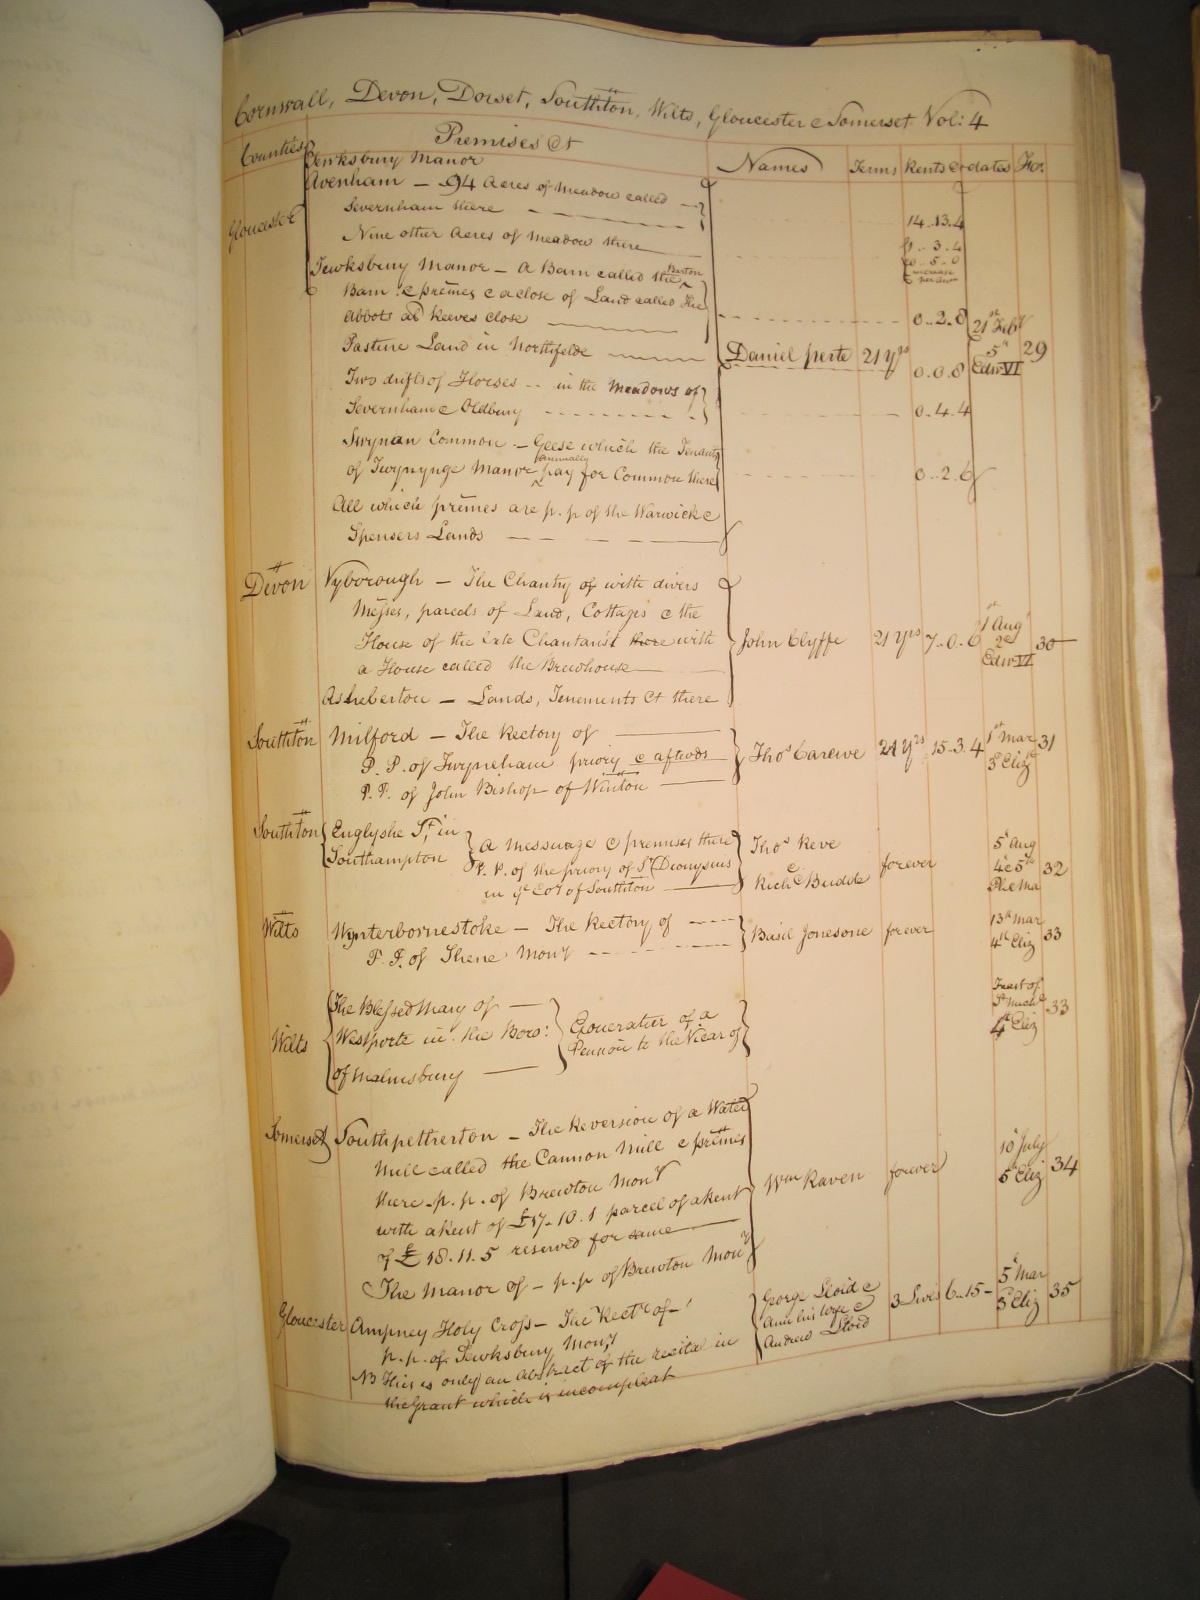 Cornwall, Devon, Dorset, Southton, Wilts, Gloucester & Somerset Vol: 4
Counties Premises &c Names Terms Rents & dates Fo.
Tewksbury Manor
Gloucester Avenham — 94 Acres of Meadow called
Severnham there 14..13..4
Nine other Acres of Meadow there 1..3..4
0..5..0
increase
Tewksbury Manor — A Barn called the Barton
Barn & prēmes & a close of Land called The
Abbots als Reeves close 0..2..8
Pasture Land in Northfelde Daniel perte 21 yrs 0..0..8 21st Feby 5th Edw VI 29
Two drifts of Horses -- in the Meadows of
Severnham & Oldbury 0..4..4
Swynan Common — Geese which the Tenants
of Twynynge Manor annually pay for Common there 0..2..6
All which prēmes are p. p of the Warwick &
Spensers Lands
Devon Vyborough — The Chantry of with divers
Messes, parcels of Land, Cottages & the
House of the late Chantarist there with John Clyffe 21 yrs 7..0..6 1st Aug 2d Edw VI 30
a House called the Brewhouse
Asheberton — Lands, Tenements &c there
Southton Milford — The Rectory of
P. P. of Twyneham priory & aftwds Thos Carewe 21 yrs 15..3..4 1st Mar 3d Eliz 31
P. P. of John Bishop of Winton
Southton Englyshe St. in
Southampton A Messuage & premises there
P. P. of the priory of St Dionysius
in ye Coy of Southton Thos Reve & Richd Budde forever 5th Aug 4 & 5th Ph & Ma 32
Wilts Wynterbornestoke — The Rectory of
P. P. of Shene Mony Basil Jonesone forever 13th Mar 4th Eliz 33
The Blessed Mary of
Wilts Westporte in the Boro:
of Malmsbury Exoneration of a
Pension to the Vicar of Feast of St Michl 4th Eliz 33
Somerset Southpetherton — The Reversion of a Water
Mill called the Cannon Mill & prēmes
there p. p. of Brewton Mony Wm Raven forever 10th July 5th Eliz 34
with a Rent of £17..10..1 parcel of a Rent
of £18..11..5 reserved for same
The Manor of — p. p of Brewton Mony
Gloucester Ampney Holy Cross — The Recty of —
p. p. of Tewksbury Mony George Lloid & Ann his wife & Andrew Lloid 3 Lives 6..15— 5th Mar 3d Eliz 35
NB This is only an Abstract of the recital in
the Grant which is incompleat